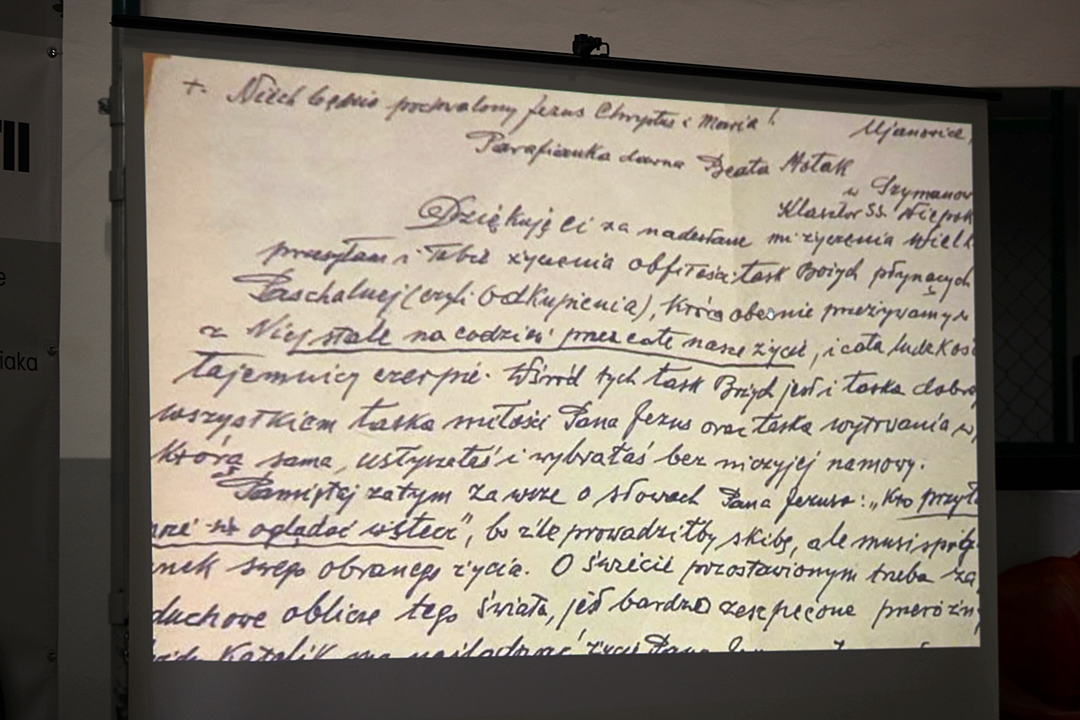 +. Niech będzie pochwalony Jezus Chrystus i Maria!
Ujanowice,
Parafianka dawna Beata
w Szymanow
Klasztor SS. Niepok
Dziękuję Ci za nadesłane mi życzenia Wielk
przesyłam i Tobie życzenia obfitości łask Bożych płynących
Paschalnej (czyli Odkupienia), którą obecnie przeżywamy
z Niej stale na codzień przez całe nasze życie, i cała ludzkość
tajemnicy czerpie. Wśród tych łask Bożych jest i łaska dobre
wszystkiem łaska miłości Pana Jezusa oraz łaska wytrwania w
którą sama, usłyszałaś i wybrałaś bez niczyjej namowy.
Pamiętaj zatym zawsze o słowach Pana Jezusa: „Kto przył
oglądać wstecz", bo źle prowadziłby skibę, ale musi
nek swego obranego życia. O świecie pozostawionym trzeba za
duchowe oblicze tego świata, jest bardzo zeszpecone
Katolik ma naśladować życie Pana
II
e
iaka